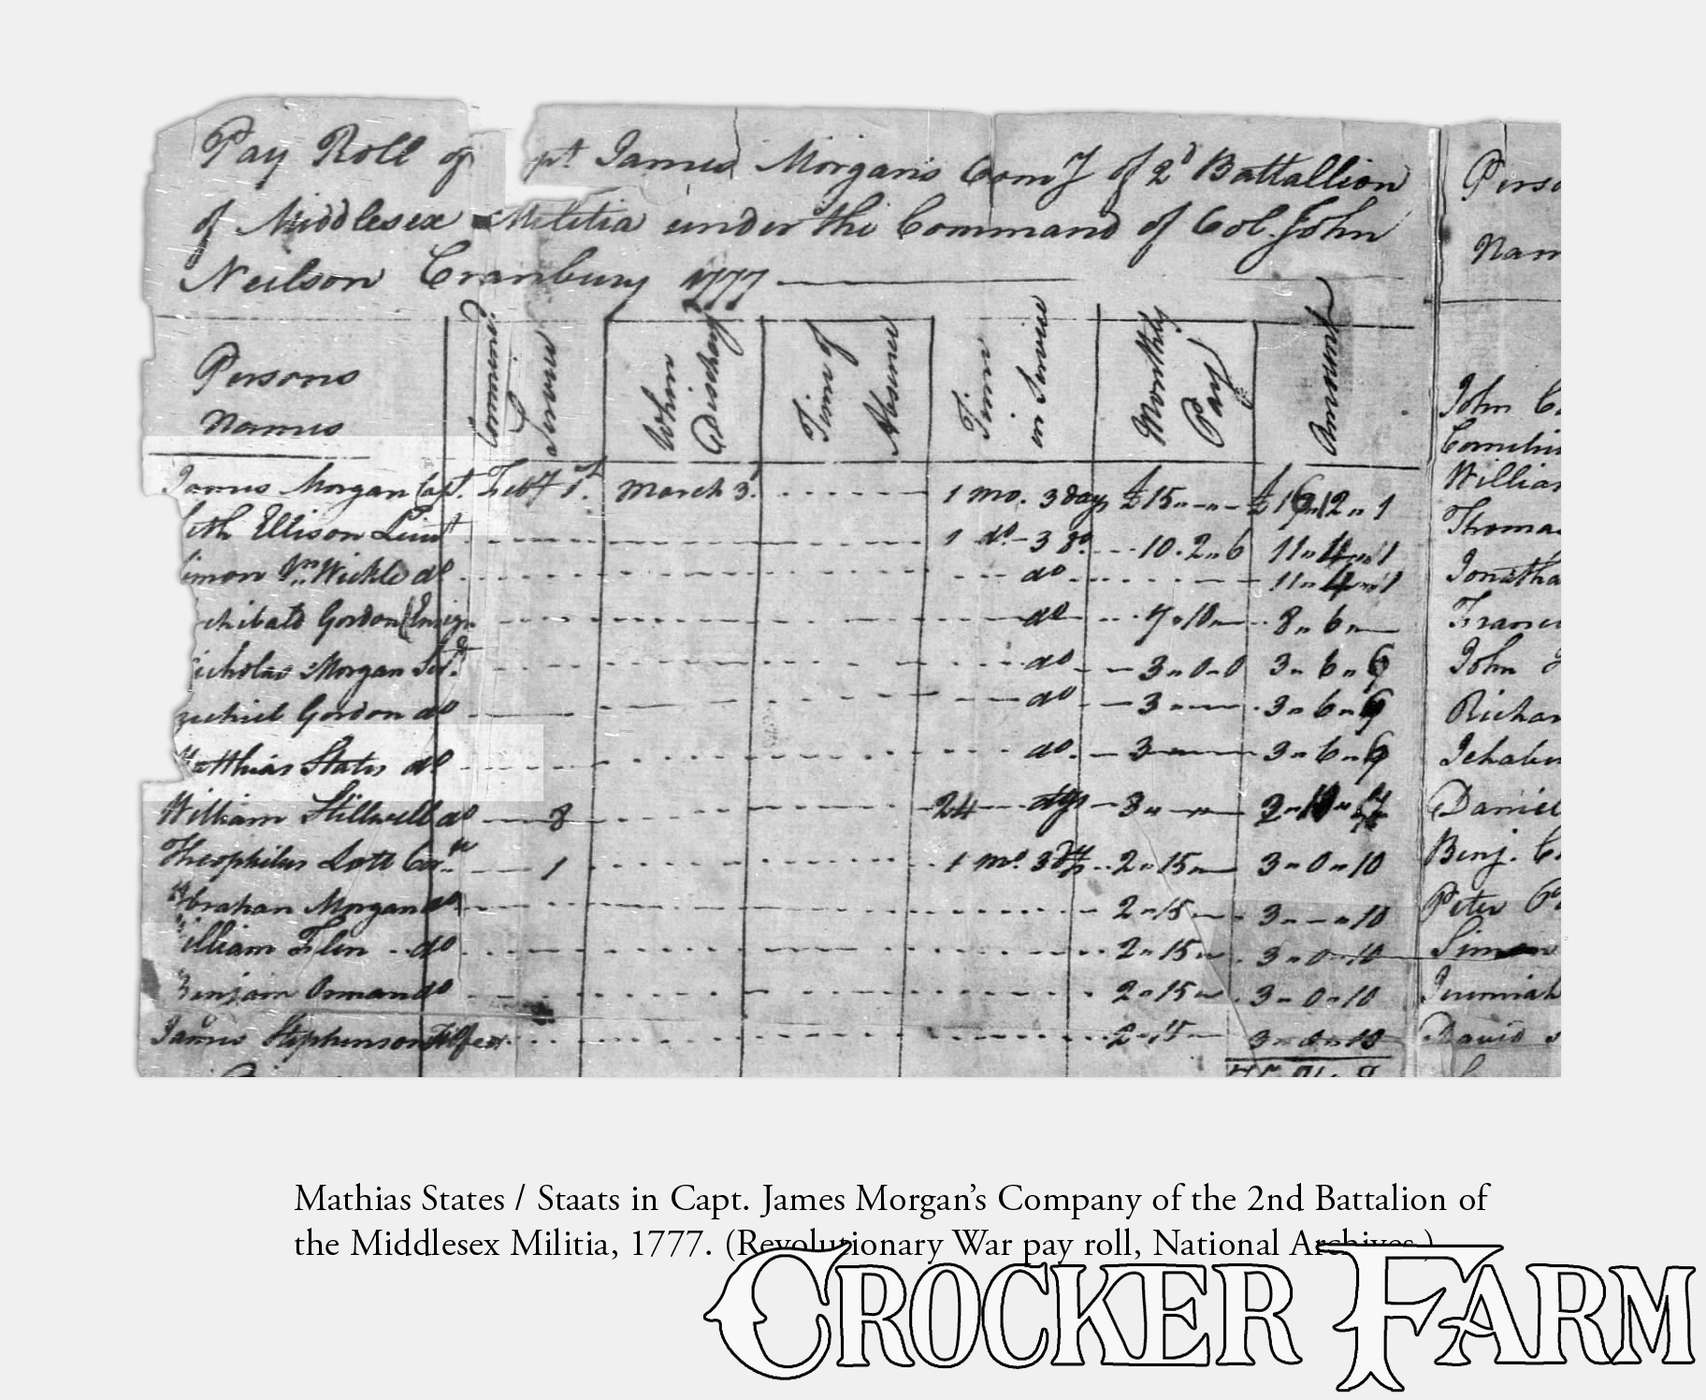 Pay Roll of pt James Morgan's Comy of 2d Battallion
of Middlesex Melitia under the Command of Col. John
Neilson Cranbury 1777
Persons Names
Commenc. Servis
When Discharg
Time of Absence
Time in Service
Monthly Pay
Amount
James Morgan Capt. Feby 1st March 3d 1 mo. 3 days £15 £16 12 1
eth Ellison Lieut 1 do 3 do 10 2 6 11 4 1
imon Vn Wickle do do 11 4 1
rchibald Gordon Ensign do 7 10 8 6
icholas Morgan Serjt do 3 0 0 3 6 6
zechiel Gordon do do 3 3 6 6
Matthias States do do 3 3 6 6
William Stillwell do 8 24 dys 3
Theophilus Lott Corl 1 1 mo 3 dys 2 15 3 0 10
Abraham Morgan do 2 15 3 10
William Flin do 2 15 3 0 10
Benjain Orman do 2 15 3 0 10
James Stephenson 2 15 3 0 10
Perso
Nam
John C
Corneliu
William
Thoma
Jonatha
Franci
John
Richar
Jehabu
Daniel
Benj. C
Peter
Simon
Jeremiah
David
Mathias States / Staats in Capt. James Morgan's Company of the 2nd Battalion of
the Middlesex Militia, 1777. (Revolutionary War pay roll, National Archives.)
CROCKER FARM